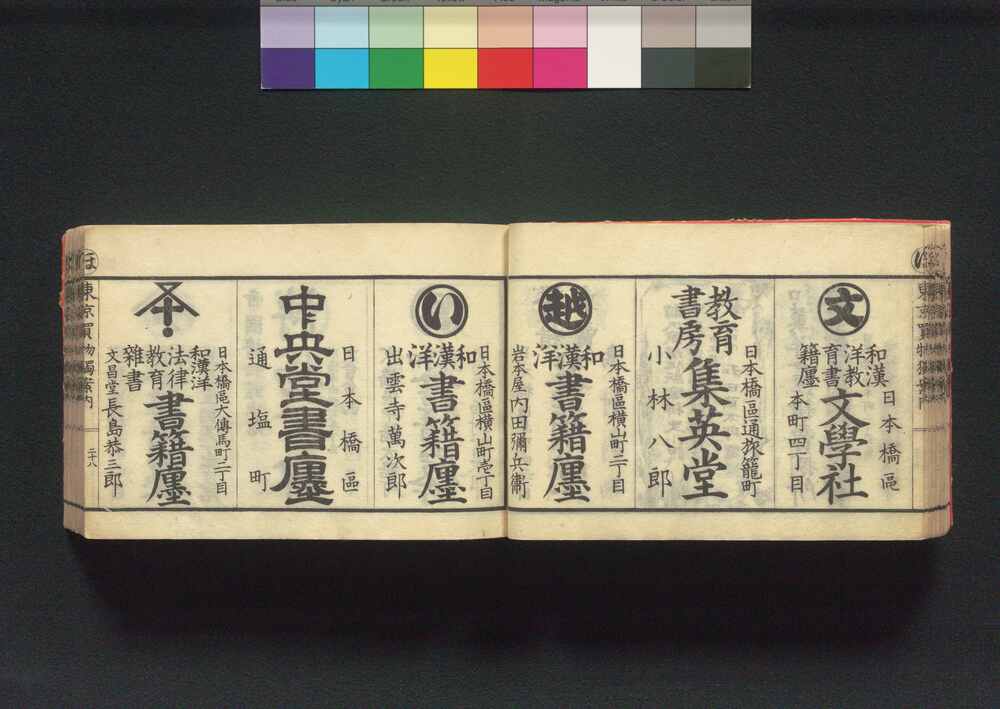 文
日本橋區
和漢
洋教
育書
籍廛
文學社
本町四丁目
日本橋區通旅籠町
教育
書房
集英堂
小林八郎
日本橋區横山町二丁目
越
和
漢
洋
書籍廛
岩本屋内田彌兵衞
日本橋區横山町壱丁目
い
和
漢
洋
書籍廛
出雲寺萬次郎
日本橋區
中央堂書廛
通塩町
日本橋區大傳馬町二丁目
和漢洋
法律
教育
雜書
書籍廛
文昌堂長島恭三郎
ほ
東京買物獨案内
二十八